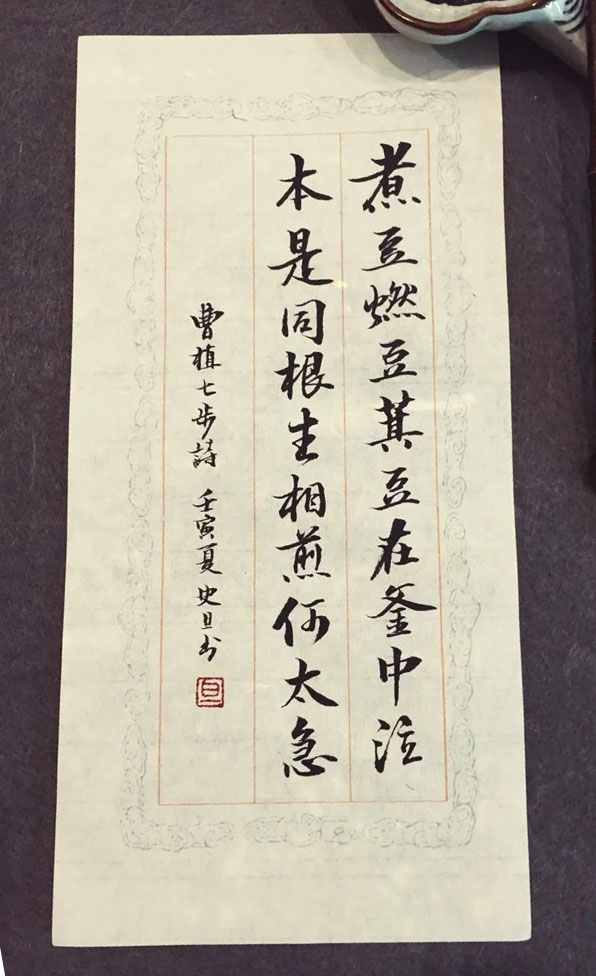 煮豆燃豆萁豆在釜中泣
本是同根生相煎何太急
曹植七步詩 壬寅夏史旦书
旦